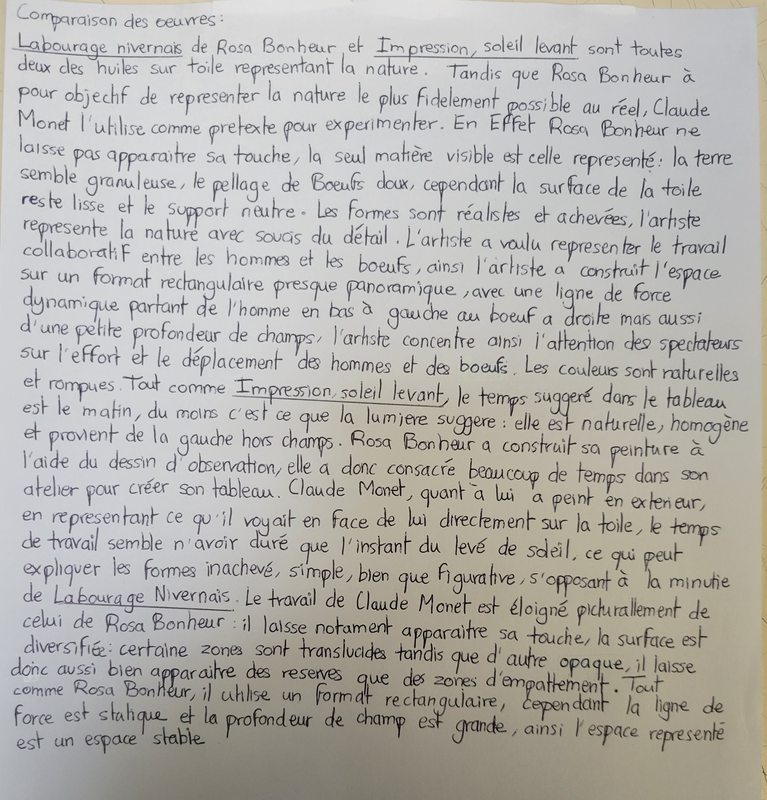 Comparaison des oeuvres:
Labourage nivernais de Rosa Bonheur et Impression, soleil levant sont toutes
deux des huiles sur toile representant la nature. Tandis que Rosa Bonheur à
pour objectif de representer la nature le plus fidelement possible au réel, Claude
Monet l'utilise comme pretexte pour experimenter. En Effet Rosa Bonheur ne
laisse pas apparaitre sa touche, la seul matière visible est celle representé: la terre
semble granuleuse, le pellage de Boeufs doux, cependant la surface de la toile
reste lisse et le support neutre. Les formes sont réalistes et achevées, l'artiste
represente la nature avec soucis du détail. L'artiste a voulu representer le travail
collaboratif entre les hommes et les boeufs, ainsi l'artiste a construit l'espace
sur un format rectangulaire presque panoramique, avec une ligne de force
dynamique partant de l'homme en bas à gauche au boeuf a droite mais aussi
d'une petite profondeur de champs, l'artiste concentre ainsi l'attention des spectateurs
sur l'effort et le déplacement des hommes et des boeufs. Les couleurs sont naturelles
et rompues. Tout comme Impression, soleil levant, le temps suggeré dans le tableau
est le matin, du moins c'est ce que la lumiere suggere: elle est naturelle, homogène
et provient de la gauche hors champs. Rosa Bonheur a construit sa peinture à
l'aide du dessin d'observation, elle a donc consacré beaucoup de temps dans son
atelier pour créer son tableau. Claude Monet, quant à lui a peint en exterieur,
en representant ce qu'il voyait en face de lui directement sur la toile, le temps
de travail semble n'avoir duré que l'instant du levé de soleil, ce qui peut
expliquer les formes inachevé, simple, bien que figurative, s'opposant à la minutie
de Labourage Nivernais. Le travail de Claude Monet est éloigné picturallement de
celui de Rosa Bonheur: il laisse notament apparaitre sa touche, la surface est
diversifiée: certaine zones sont translucides tandis que d'autre opaque, il laisse
donc aussi bien apparaitre des reserves que des zones d'empattement. Tout
comme Rosa Bonheur, il utilise un format rectangulaire, cependant la ligne de
force est statique et la profondeur de champ est grande, ainsi l'espace representé
est un espace stable